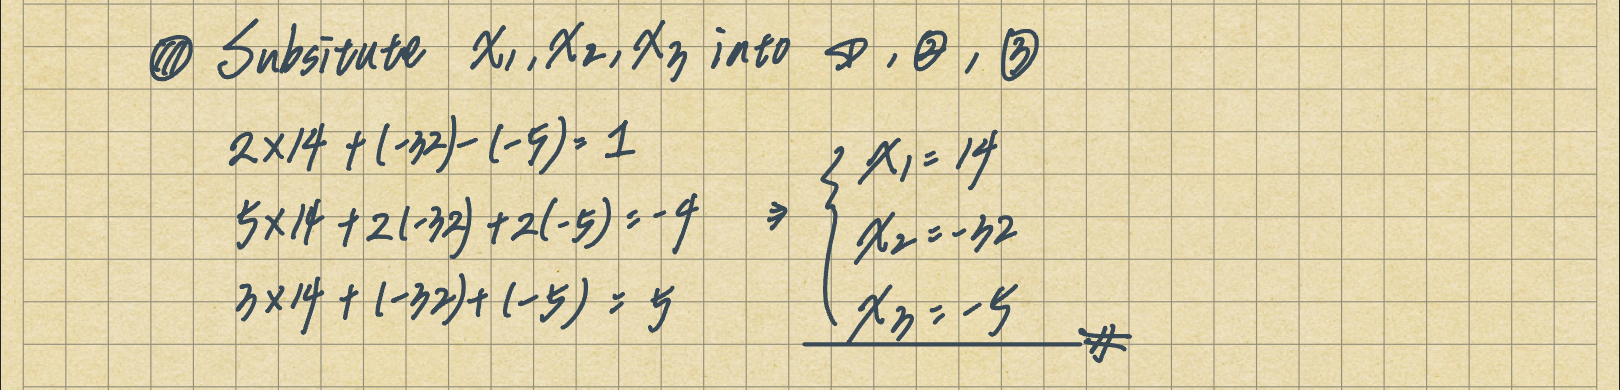 Ⓘ Subsitute x₁, x₂, x₃ into ①, ②, ③
2×14 + (-32) - (-5) = 1
5×14 + 2(-32) + 2(-5) = -4
3×14 + (-32) + (-5) = 5
⇒ { x₁ = 14
x₂ = -32
x₃ = -5 #